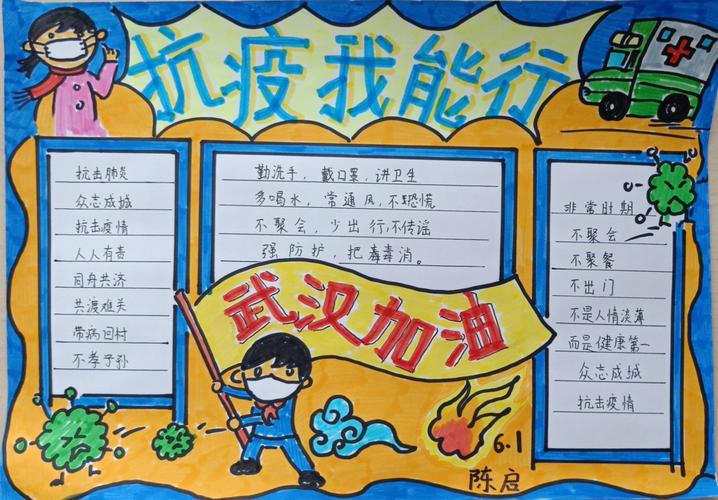 抗疫我能行
抗击肺炎
众志成城
抗击疫情
人人有责
同舟共济
共渡难关
带病回村
不孝子孙
勤洗手，戴口罩，讲卫生
多喝水，常通风，不恐慌
不聚会，少出行，不传谣
强防护，把毒毒消。
非常时期
不聚会
不聚餐
不出门
不是人情淡薄
而是健康第一
众志成城
抗击疫情
武汉加油
6.1
陈启